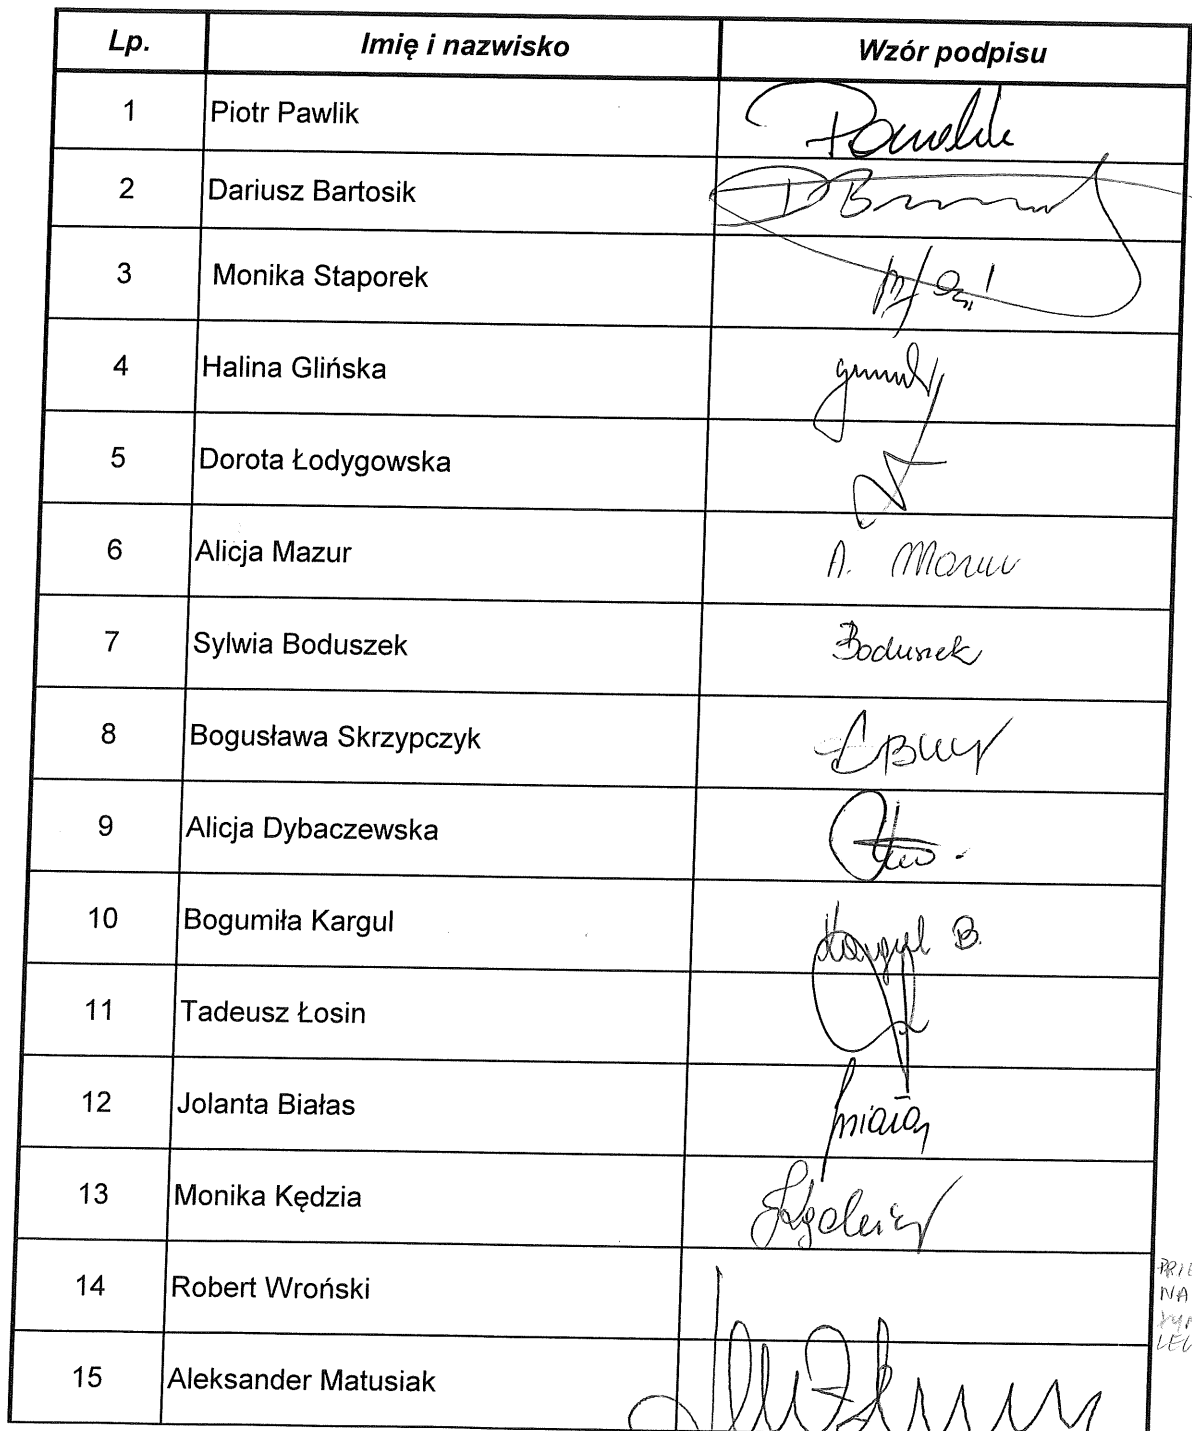 Lp. Imię i nazwisko Wzór podpisu
1 Piotr Pawlik Pawlik
2 Dariusz Bartosik
3 Monika Staporek
4 Halina Glińska
5 Dorota Łodygowska
6 Alicja Mazur A. Mazur
7 Sylwia Boduszek Boduszek
8 Bogusława Skrzypczyk
9 Alicja Dybaczewska
10 Bogumiła Kargul Kargul B.
11 Tadeusz Łosin
12 Jolanta Białas
13 Monika Kędzia
14 Robert Wroński
NA
15 Aleksander Matusiak